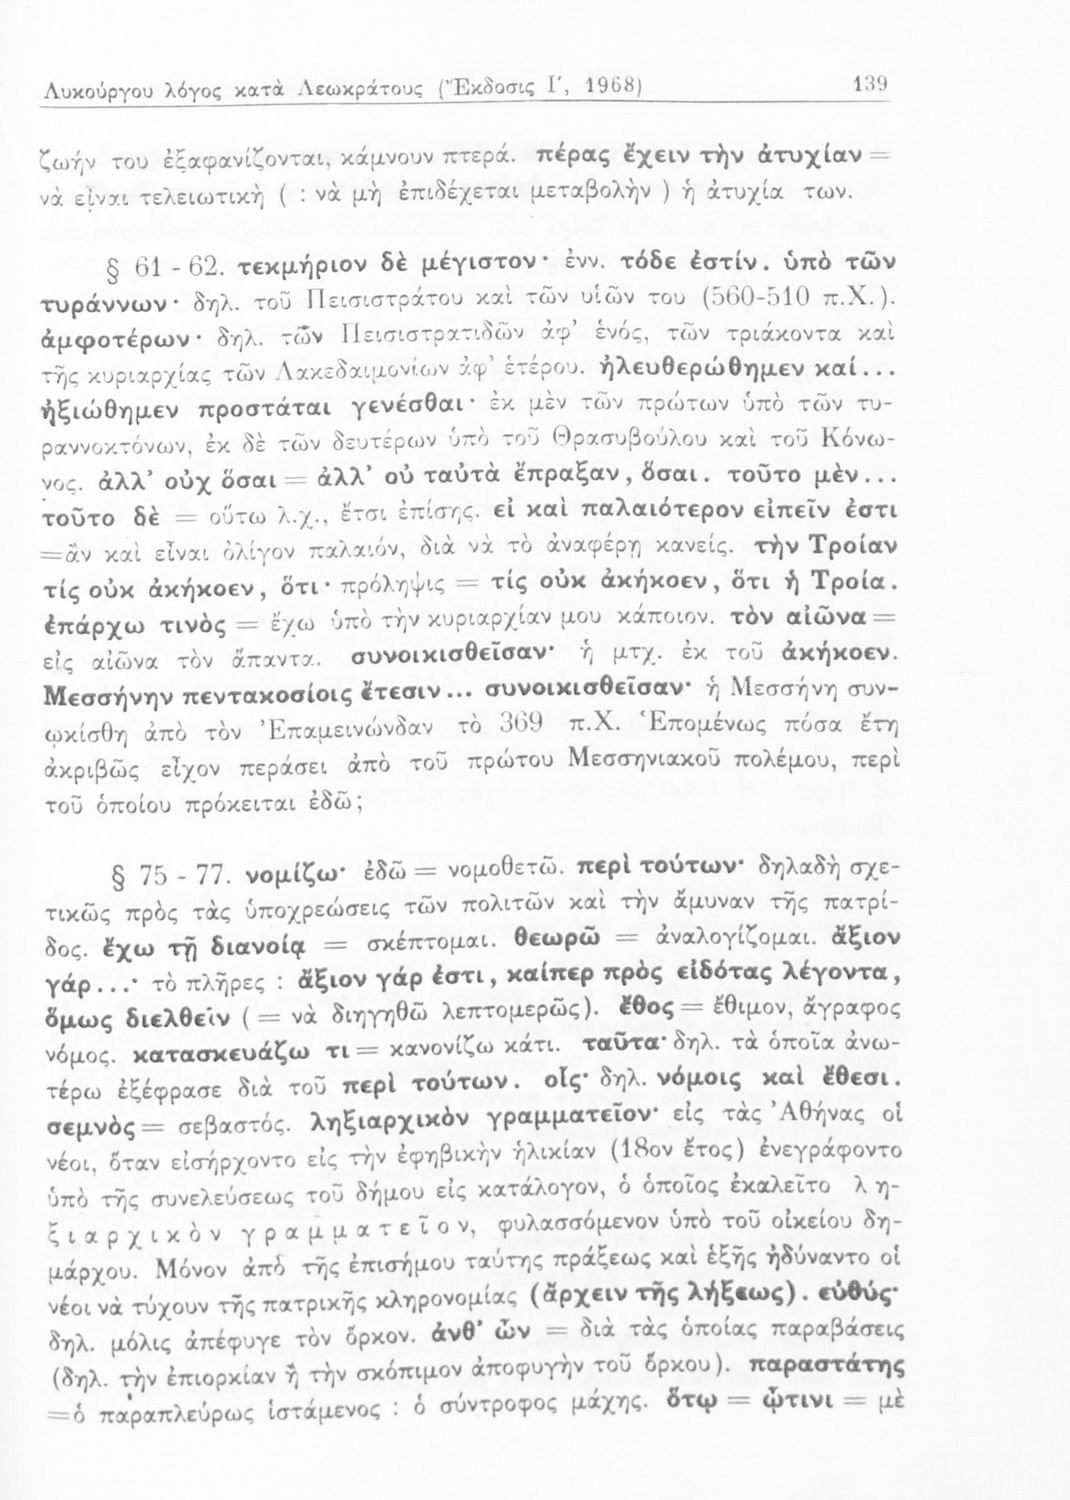 Λυκούργου λόγος κατὰ Λεωκράτους (Ἔκδοσις Γ′, 1968) 139
ζωήν του ἐξαφανίζονται, κάμνουν πτερά. πέρας ἔχειν τὴν ἀτυχίαν =
νὰ εἶναι τελειωτικὴ ( : νὰ μὴ ἐπιδέχεται μεταβολὴν ) ἡ ἀτυχία των.
§ 61 - 62. τεκμήριον δὲ μέγιστον· ἐνν. τόδε ἐστίν. ὑπὸ τῶν
τυράννων· δηλ. τοῦ Πεισιστράτου καὶ τῶν υἱῶν του (560-510 π.Χ.).
ἀμφοτέρων· δηλ. τῶν Πεισιστρατιδῶν ἀφ’ ἑνός, τῶν τριάκοντα καὶ
τῆς κυριαρχίας τῶν Λακεδαιμονίων ἀφ’ ἑτέρου. ἠλευθερώθημεν καί...
ἠξιώθημεν προστάται γενέσθαι· ἐκ μὲν τῶν πρώτων ὑπὸ τῶν τυ-
ραννοκτόνων, ἐκ δὲ τῶν δευτέρων ὑπὸ τοῦ Θρασυβούλου καὶ τοῦ Κόνω-
νος. ἀλλ’ οὐχ ὅσαι = ἀλλ’ οὐ ταὐτὰ ἔπραξαν, ὅσαι. τοῦτο μὲν...
τοῦτο δὲ = οὕτω λ.χ., ἔτσι ἐπίσης. εἰ καὶ παλαιότερον εἰπεῖν ἐστι
=ἂν καὶ εἶναι ὀλίγον παλαιόν, διὰ νὰ τὸ ἀναφέρῃ κανείς. τὴν Τροίαν
τίς οὐκ ἀκήκοεν, ὅτι· πρόληψις = τίς οὐκ ἀκήκοεν, ὅτι ἡ Τροία.
ἐπάρχω τινὸς = ἔχω ὑπὸ τὴν κυριαρχίαν μου κάποιον. τὸν αἰῶνα =
εἰς αἰῶνα τὸν ἅπαντα. συνοικισθεῖσαν· ἡ μτχ. ἐκ τοῦ ἀκήκοεν.
Μεσσήνην πεντακοσίοις ἔτεσιν... συνοικισθεῖσαν· ἡ Μεσσήνη συν-
ῳκίσθη ἀπὸ τὸν Ἐπαμεινώνδαν τὸ 369 π.Χ. Ἑπομένως πόσα ἔτη
ἀκριβῶς εἶχον περάσει ἀπὸ τοῦ πρώτου Μεσσηνιακοῦ πολέμου, περὶ
τοῦ ὁποίου πρόκειται ἐδῶ;
§ 75 - 77. νομίζω· ἐδῶ = νομοθετῶ. περὶ τούτων· δηλαδὴ σχε-
τικῶς πρὸς τὰς ὑποχρεώσεις τῶν πολιτῶν καὶ τὴν ἄμυναν τῆς πατρί-
δος. ἔχω τῇ διανοίᾳ = σκέπτομαι. θεωρῶ = ἀναλογίζομαι. ἄξιον
γάρ...· τὸ πλῆρες : ἄξιον γάρ ἐστι, καίπερ πρὸς εἰδότας λέγοντα,
ὅμως διελθεῖν ( = νὰ διηγηθῶ λεπτομερῶς). ἔθος = ἔθιμον, ἄγραφος
νόμος. κατασκευάζω τι = κανονίζω κάτι. ταῦτα· δηλ. τὰ ὁποῖα ἀνω-
τέρω ἐξέφρασε διὰ τοῦ περὶ τούτων. οἷς· δηλ. νόμοις καὶ ἔθεσι.
σεμνὸς = σεβαστός. ληξιαρχικὸν γραμματεῖον· εἰς τὰς Ἀθήνας οἱ
νέοι, ὅταν εἰσήρχοντο εἰς τὴν ἐφηβικὴν ἡλικίαν (18ον ἔτος) ἐνεγράφοντο
ὑπὸ τῆς συνελεύσεως τοῦ δήμου εἰς κατάλογον, ὁ ὁποῖος ἐκαλεῖτο λη-
ξιαρχικὸν γραμματεῖον, φυλασσόμενον ὑπὸ τοῦ οἰκείου δη-
μάρχου. Μόνον ἀπὸ τῆς ἐπισήμου ταύτης πράξεως καὶ ἑξῆς ἠδύναντο οἱ
νέοι νὰ τύχουν τῆς πατρικῆς κληρονομίας (ἄρχειν τῆς λήξεως). εὐθύς·
δηλ. μόλις ἀπέφυγε τὸν ὅρκον. ἀνθ’ ὧν = διὰ τὰς ὁποίας παραβάσεις
(δηλ. τὴν ἐπιορκίαν ἢ τὴν σκόπιμον ἀποφυγὴν τοῦ ὅρκου). παραστάτης
=ὁ παραπλεύρως ἱστάμενος : ὁ σύντροφος μάχης. ὅτῳ = ᾧτινι = μὲ